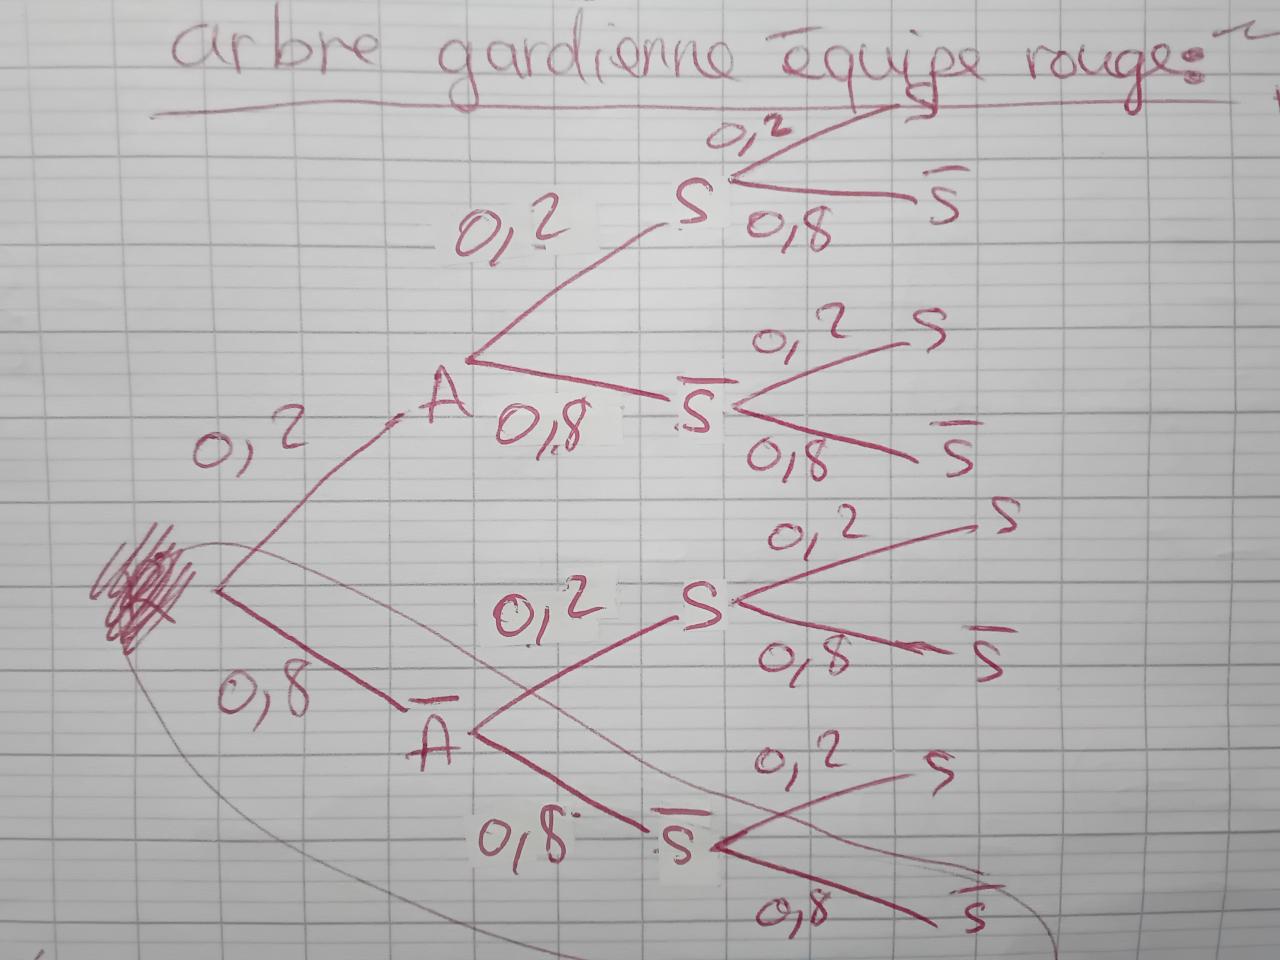 arbre gardienne équipe rouge:
S
0,2
S̅
S
0,8
0,2
0,2
S
A
0,8
S̅
0,2
0,8
S̅
S
0,2
0,2
S
0,8
S̅
0,8
A̅
0,2
S
0,8
S̅
0,8
S̅